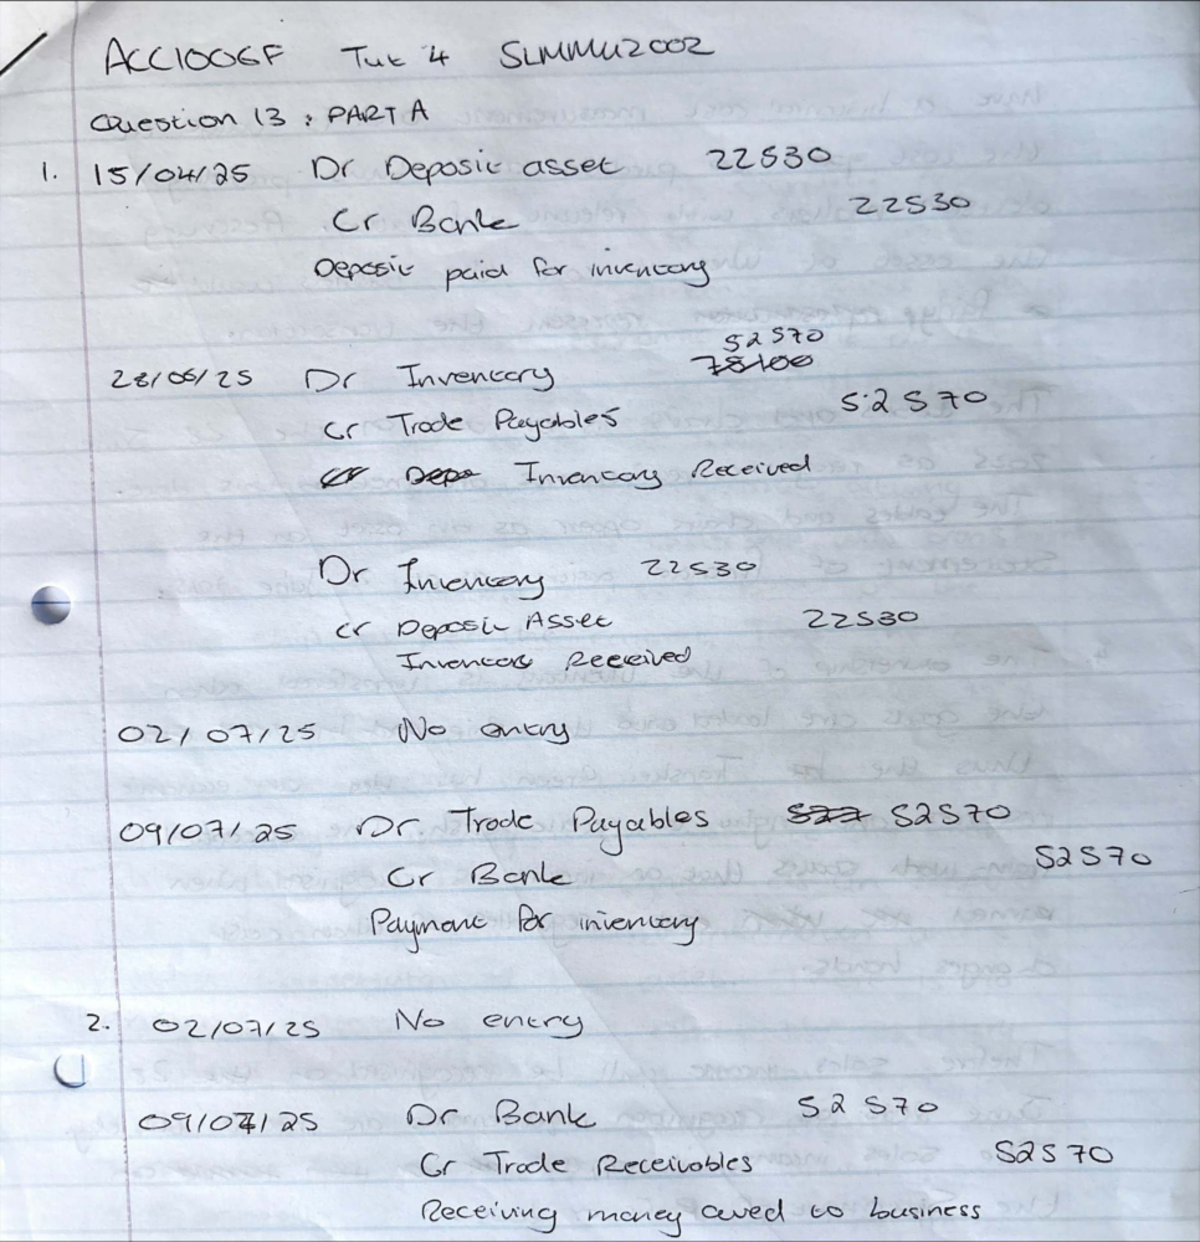 ACC1006F Tut 4 SLMMU2002
Question 13 : PART A
1. 15/04/25 Dr Deposit asset 22530
Cr Bank 22530
Deposit paid for inventory
52570
28/06/25 Dr Inventory 78100
Cr Trade Payables 52570
Cr Depo Inventory Received
Dr Inventory 22530
Cr Deposit Asset 22530
Inventory Received
02/07/25 No entry
09/07/25 Dr Trade Payables 577 52570
Cr Bank 52570
Payment for inventory
2. 02/07/25 No entry
09/07/25 Dr Bank 52570
Cr Trade Receivables 52570
Receiving money owed to business